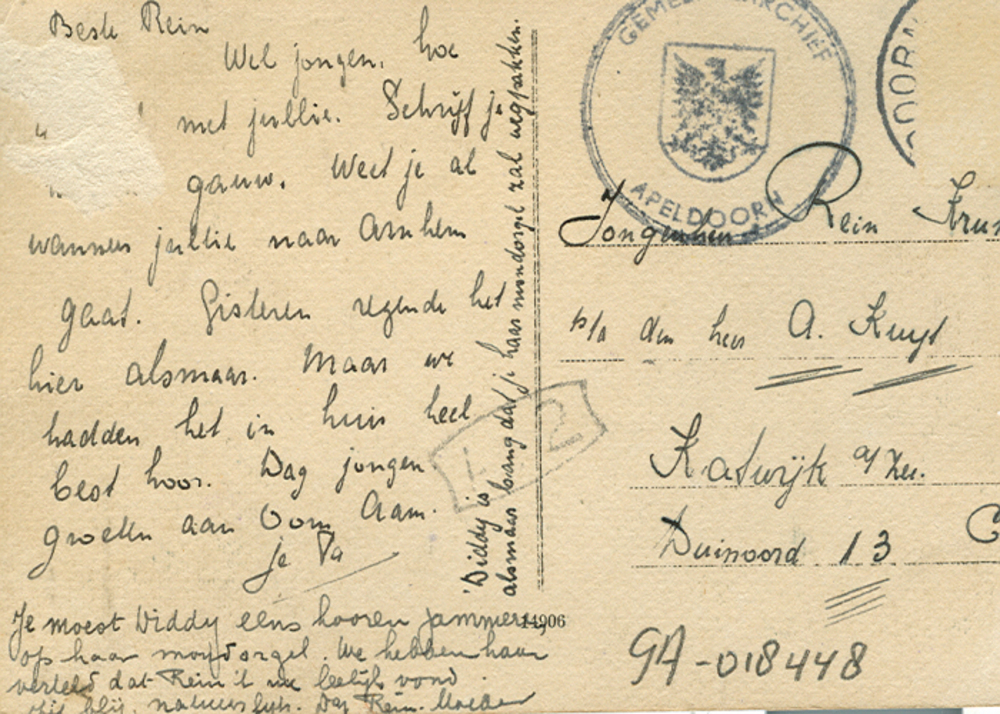 Beste Rein
Wel jongen, hoe
met jullie. Schrijf je
gauw. Weet je al
wanneer jullie naar Arnhem
gaat. Gisteren regende het
hier alsmaar. Maar we
hadden het in huis heel
best hoor. Dag jongen
groeten aan Oom Aam.
je Pa
Je moest Diddy eens hooren jammeren
op haar mondorgel. We hebben haar
verteld dat Rein 't leelijk vond
blij, natuurlijk. Dag Rein. Moeder
Diddy is
alsmaar bang dat je haar mondorgel zal wegpakken.
14906
GEMEENTEARCHIEF
APELDOORN
DOORN
Jongenheer Rein
p/a den heer A. Kuyt
Katwijk a/Zee.
Duinoord 13
L 2
GA-018448